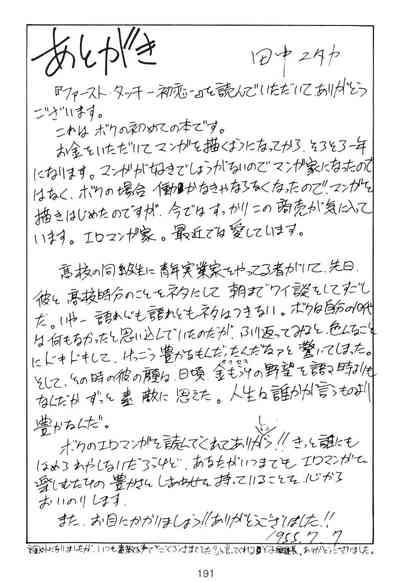 あとがき
田中ユタカ
『ファースト・タッチ-初恋-』を読んでいただいてありがとう
ございます。
これはボクの初めての本です。
お金をいただいてマンガを描くようになってから、そろそろ一年
になります。マンガが好きでしょうがないのでマンガ家になったので
はなく、ボクの場合働かなきゃならなくなったのでマンガを
描きはじめたのですが、今ではすっかりこの商売が気に入って
います。エロマンガ家。最近では愛しています。
高校の同級生に青年実業家をやってる者がいて、先日、
彼と高校時分のことをネタにして朝までワイ談をしてすごし
た。いやー語れども語れどもネタはつきない。ボクは自分の10代
は何もなかったと思い込んでいたのだが、ふり返ってみると、色んなこと
にドキドキして、けっこう豊かなもんだったんだなァと驚いてしまった。
そして、その時の彼の顔は、日頃金もうけの野望を語る時よりも
なんだかずっと素敵に思えた。人生は誰かが言うものより
豊かなんだ。
ボクのエロマンガを読んでくれてありがとう!!きっと誰にも
ほめられやしないだろうけど、あなたがいつまでもエロマンガを
愛しむための豊かさとしあわせを持っていることを心から
おいのりします。
また、お目にかかりましょう!!ありがとうございました!!
7.7
191